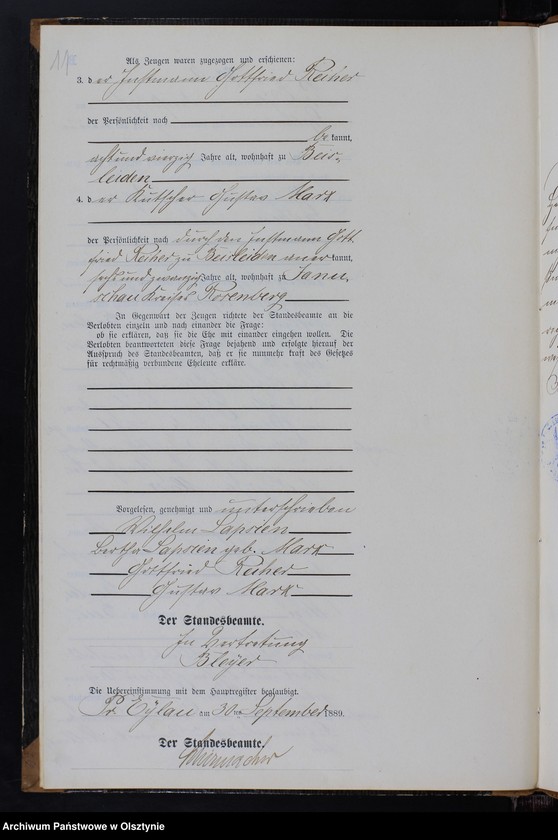 Als Zeugen waren zugezogen und erschienen:
3. der Instmann Gottfried Reiher
der Persönlichkeit nach
bekannt,
achtundvierzig Jahre alt, wohnhaft zu Beis-
leiden
4. der Kutscher Gustav Marx
der Persönlichkeit nach durch den Instmann Gott-
fried Reiher zu Beisleiden anerkannt,
sechsundzwanzig Jahre alt, wohnhaft zu Janu-
schau Kreises Rosenberg
In Gegenwart der Zeugen richtete der Standesbeamte an die
Verlobten einzeln und nach einander die Frage:
ob sie erklären, daß sie die Ehe mit einander eingehen wollen. Die
Verlobten beantworteten diese Frage bejahend und erfolgte hierauf der
Ausspruch des Standesbeamten, daß er sie nunmehr kraft des Gesetzes
für rechtmäßig verbundene Eheleute erkläre.
Vorgelesen, genehmigt und unterschrieben
Wilhelm Lapsien
Bertha Lapsien geb. Marx
Gottfried Reiher
Gustav Marx
Der Standesbeamte.
In Vertretung
Bleyer
Die Uebereinstimmung mit dem Hauptregister beglaubigt.
Pr. Eylau am 30ten September 1889.
Der Standesbeamte.
Archiwum Państwowe w Olsztynie